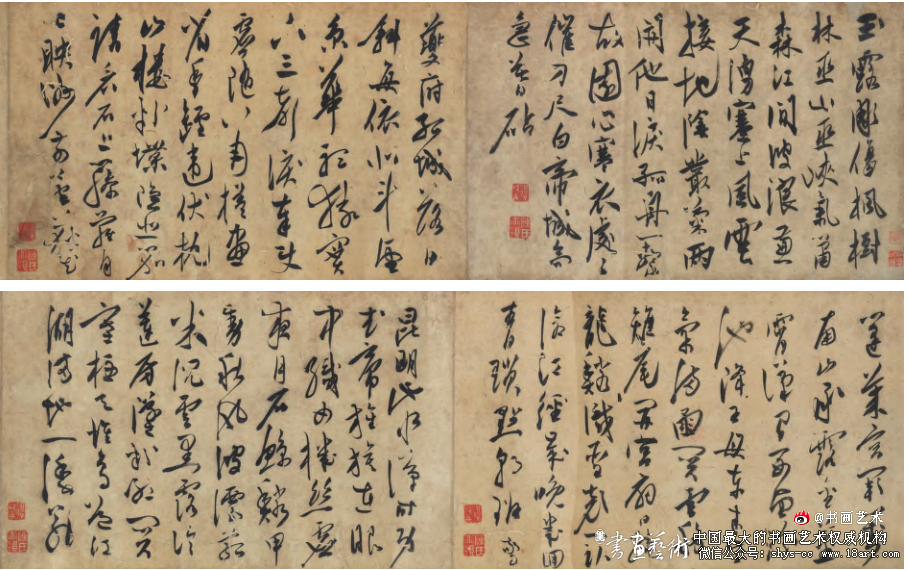 玉露凋傷楓樹
林巫山巫峽氣蕭
森江間波浪兼
天湧塞上風雲
接地陰叢菊兩
開他日淚孤舟一繫
故園心寒衣處々
催刀尺白帝城高
急暮砧
夔府孤城落日
斜每依北斗望
京華聽猿實
下三聲淚奉使
虛隨八月槎畫
省香爐違伏枕
山樓粉堞隱悲笳
請看石上藤蘿月
已映洲前蘆荻花
蓬萊宮闕對
南山承露金莖
霄漢間西望
池降王母東來
氣滿函關雲移
雉尾開宮扇日
龍鱗識聖顏一臥
滄江驚歲晚幾回
青瑣點朝班
昆明池水漢時功
武帝旌旗在眼
中織女機絲虛
夜月石鯨鱗甲
動秋風波漂菰
米沉雲黑露冷
蓮房墜粉紅關
塞極天惟鳥道江
湖滿地一漁翁
@书画艺术
書畫藝術
中国最大的书画艺术权威机构
微信公众号:shys-cc www.18art.com